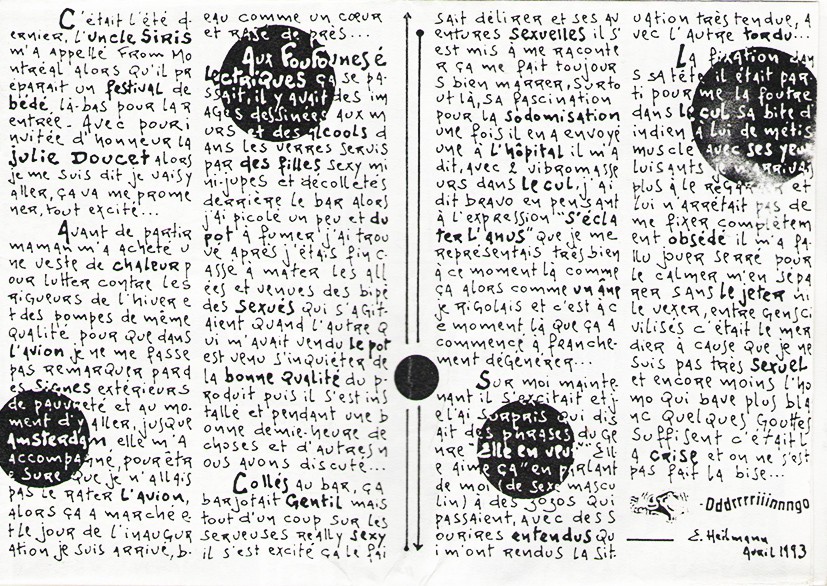 C'était l'été d-
ernier, l'Uncle SIRIS
m'a appellé FROM Mo
ntRéal alors qu'il pr
éparait un festival de
bédé, là-bas pour la r
entrée. Avec pour i
nvitée d'honneur la
Julie DOUCET alors
je me suis dit je vais y
aller, ça va me prome
ner, tout excité...
Avant de partir
maman m'a acheté u
ne veste de chaleur p
our lutter contre les
RigueuRs de l'hiver e
t des pompes de même
Qualité pour que dans
l'avion je ne me fasse
pas remarquer par d
es Signes extérieurs
de pauvreté et au mo-
ment d'y aller, jusque
Amsterdam elle m'a
accompagnée, pour êtr
e sure que je n'allais
pas le rater l'avion,
alors ça a marché e
t le jour de l'inaugur
ation je suis arrivé, b-
eau comme un cœur
et RASÉ de près...
Aux FouFounes é
lectriques ça se pa-
ssait, il y avait des im
ages dessinées aux m
urs et des alcools d
ans les verres servis
par des filles sexy mi
ni-jupes et décolletés
derrière le bar alors
j'ai picolé un peu et du
pot à fumer j'ai trou
vé après j'étais fin c-
assé à mater les all
ées et venues des bipé
des sexués qui s'agit-
aient quand l'autre q
ui m'avait vendu le pot
est venu s'inquiéter de
la bonne Qualité du p-
roduit puis il s'est ins
tallé et pendant une b
onne demie-heure de
choses et d'autres n
ous avons discuté...
Collés au bar, ça
barjotait Gentil mais
tout d'un coup sur les
serveuses really sexy
il s'est excité ça le fai
sait délirer et ses av
entures sexuelles il s'
est mis à me raconte
r ça me fait toujour
s bien marrer, surto
ut là, sa fascination
pour la sodomisation
une fois il en a envoyé
une à l'hôpital il m'a
dit, avec 2 vibromasse
urs dans le cul, j'ai
dit bravo en pensant
à l'expression "s'écla
ter l'anus" que je me
représentais très bien
à ce moment là comme
ça alors comme un ane
je rigolais et c'est à c
e moment là que ça a
commencé à franche-
ment dégénérer...
Sur moi mainte-
nant il s'excitait et j-
e l'ai surpris qui dis
ait des phrases du ge
nre "Elle en veut" "Ell
e aime ça" en parlant
de moi (de sexe mascu
lin) à des jojos qui
passaient, avec des s
ourires entendus qu
i m'ont rendus la sit
uation très tendue, a
vec l'autre tordu...
La fixation dan
s sa tête, il était par
ti pour me la foutre
dans le cul sa bite d'
indien à lui de métis
musclé avec ses yeux
luisants j'arrivai
plus à le regarder et
lui n'arrêtait pas de
me fixer complètem
ent obsédé il m'a fa-
llu jouer serré pour
le calmer m'en sépa
rer sans le jeter ni
le vexer, entre gens ci
vilisés c'était le mer
dier à cause que je ne
suis pas très sexuel
et encore moins l'ho
mo qui bave plus bla
nc quelques gouttes
suffisent c'était l
a crise et on ne s'est
pas fait la bise...
-Dddrrrrriiinnnngo
E. Heilmann
Avril 1993